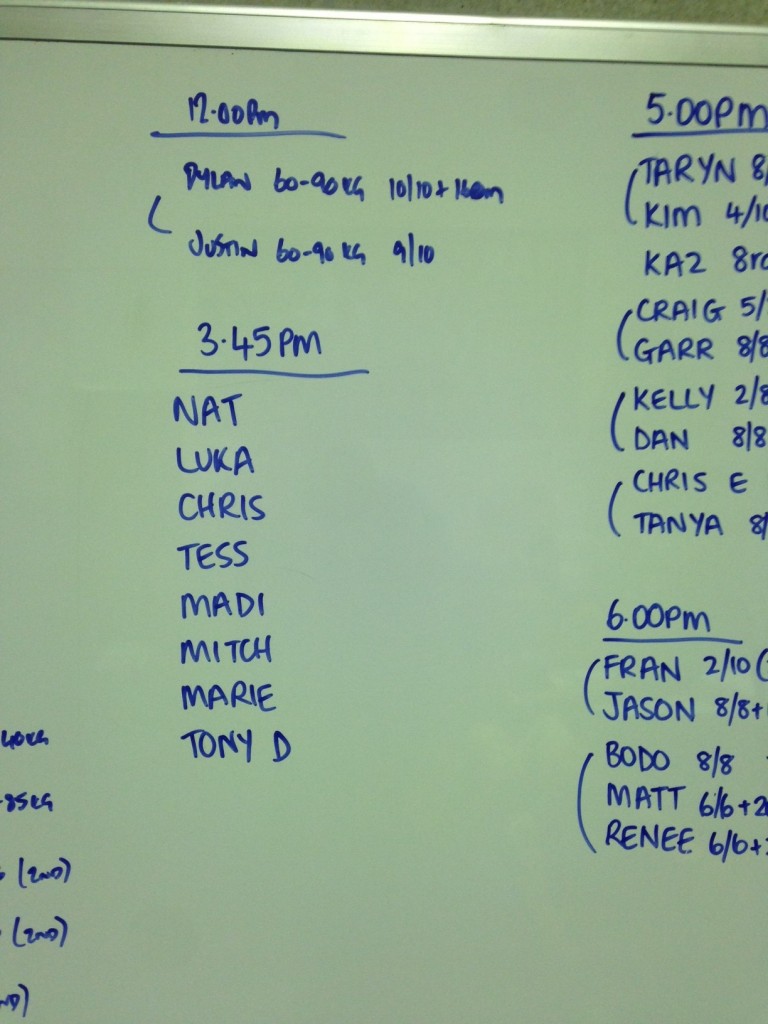 12.00PM
DYLAN 60-90KG 10/10+
JUSTIN 60-90KG 9/10
3.45PM
NAT
LUKA
CHRIS
TESS
MADI
MITCH
MARIE
TONY D
40KG
-85KG
(2ND)
(2ND)
ND)
5.00PM
TARYN 8/
KIM 4/10
KAZ 8
CRAIG 5/
GARR 8/8
KELLY 2/8
DAN 8/8
CHRIS E
TANYA 8/
6.00PM
FRAN 2/10 (
JASON 8/8+
BODO 8/8
MATT 6/6+2
RENEE 6/6+